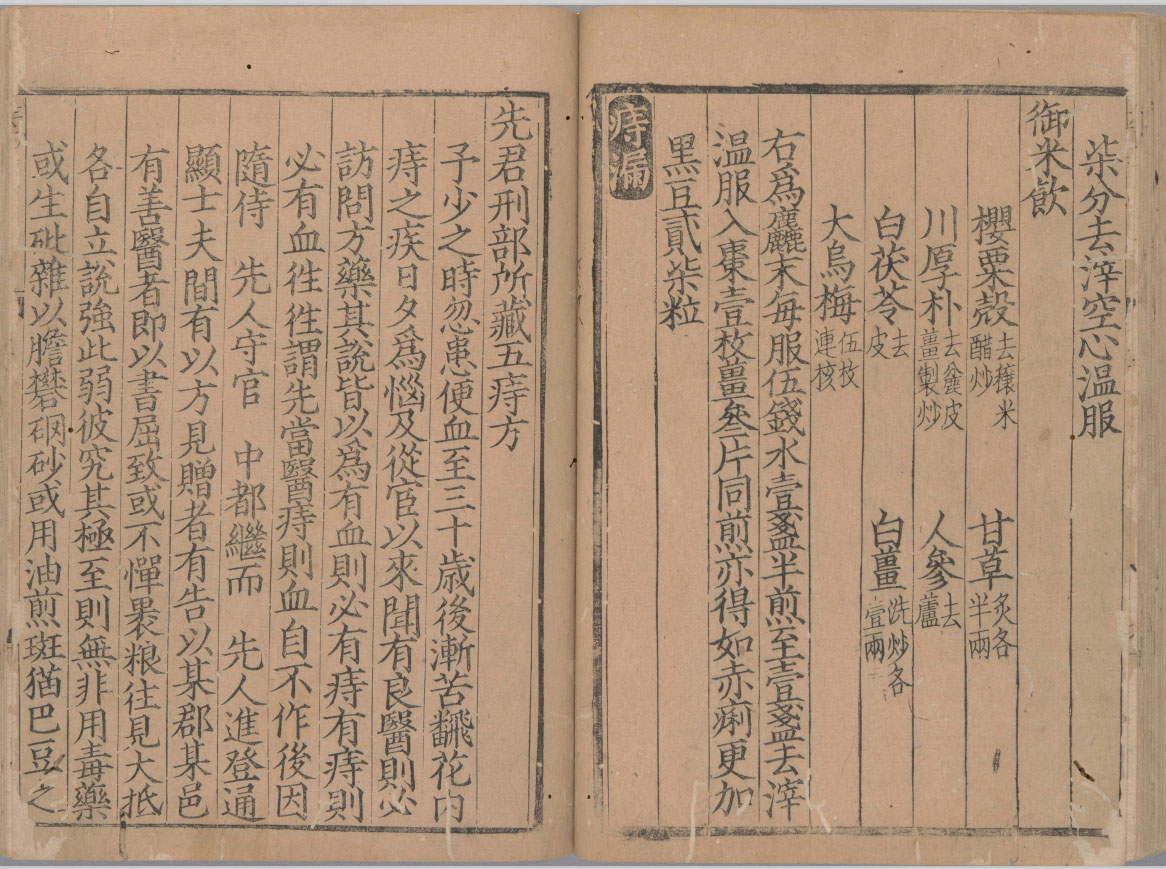 柒分去滓空心温服
御米飲
櫻粟殼 去穰米醋炒 甘草 炙各半兩
川厚朴 去麄皮薑製炒 人參 去蘆
白茯苓 去皮 白薑 洗炒各壹兩
大烏梅 伍枚連核
右爲麤末每服伍錢水壹盞半煎至壹盞去滓
温服入棗壹枚薑叄片同煎亦得如赤痢更加
黑豆貳柒粒
痔漏
先君刑部所藏五痔方
予少之時忽患便血至三十歲後漸苦飜花内
痔之疾日夕爲惱及從宦以來聞有良醫則必
訪問方藥其說皆以爲有血則必有痔有痔則
必有血徃徃謂先當醫痔則血自不作後因
隨侍 先人守官 中都繼而 先人進登通
顯士夫間有以方見贈者有告以某郡某邑
有善醫者即以書屈致或不憚裹粮往見大抵
各自立說強此弱彼究其極至則無非用毒藥
或生砒雜以膽礬硇砂或用油煎斑猫巴豆之